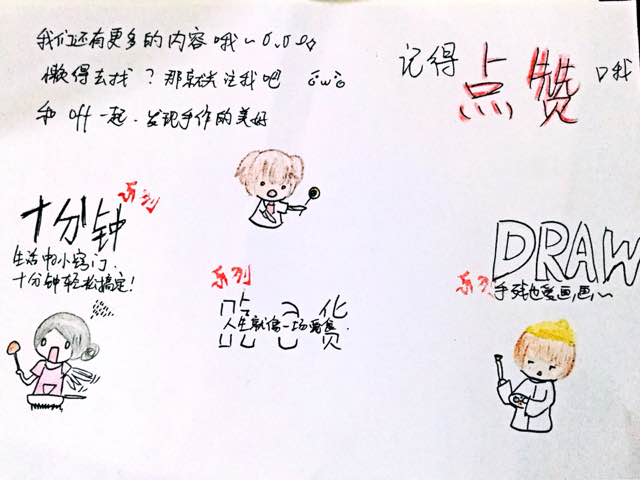 我们还有更多的内容哦~
懒得去找？那就关注我吧
和 一起.发现手作的美好
记得点赞哦
十分钟系列
生活中小窍门，
十分钟轻松搞定！
系列
人生就像一场觅食.
DRAW
系列
手残也爱画画~